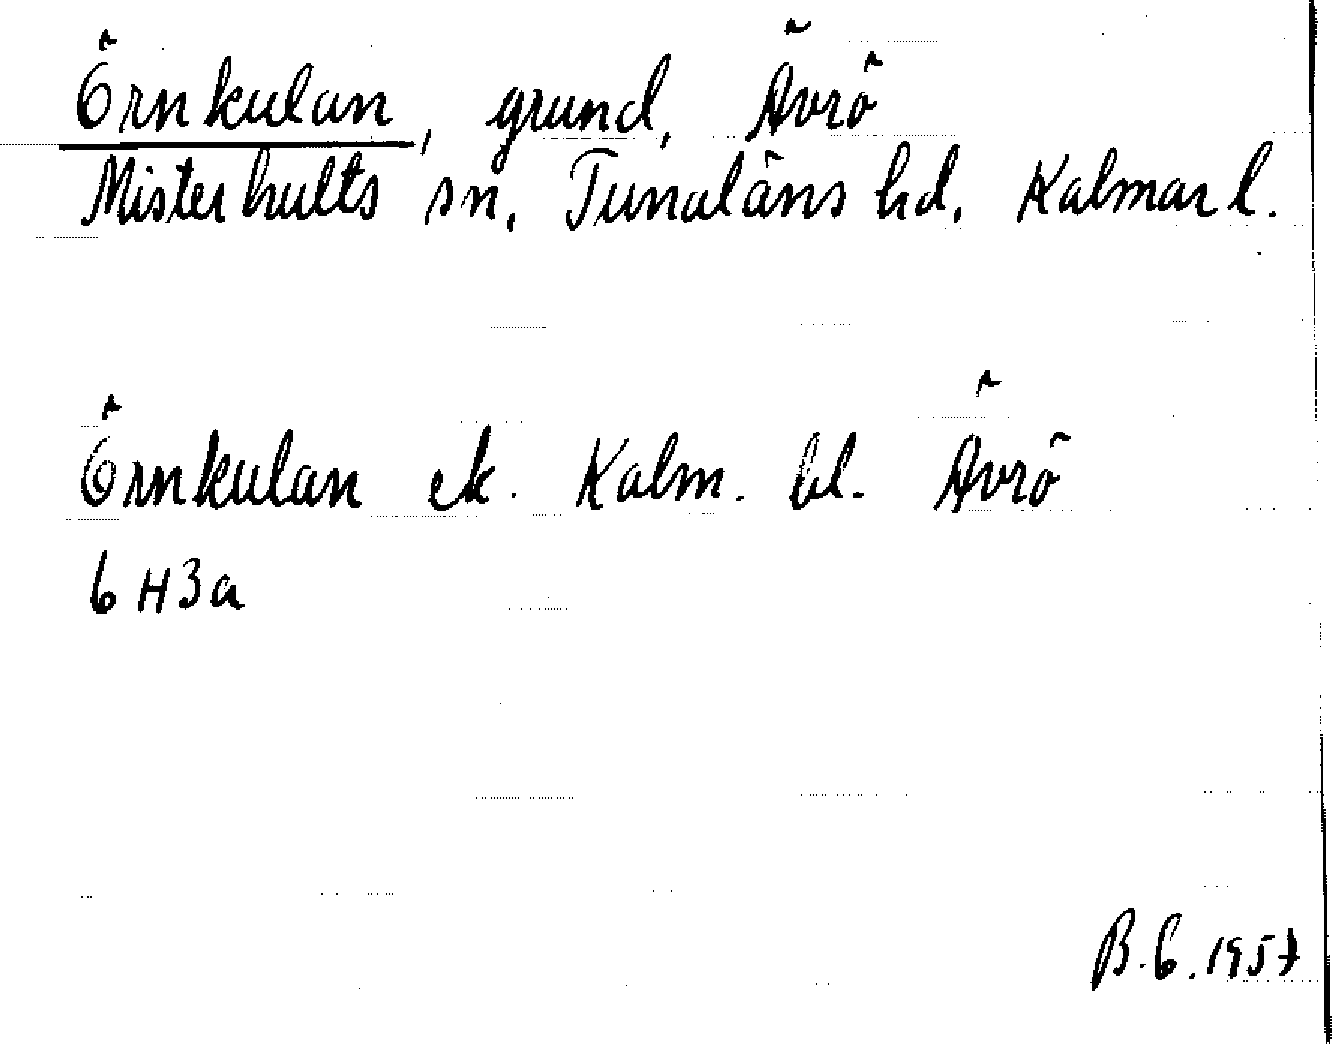 Örnkulan, grund, Ävrö
Misterhults sn, Tunaläns hd, Kalmar l.
Örnkulan ek. Kalm. bl. Ävrö
6 H3a
B.G. 1957